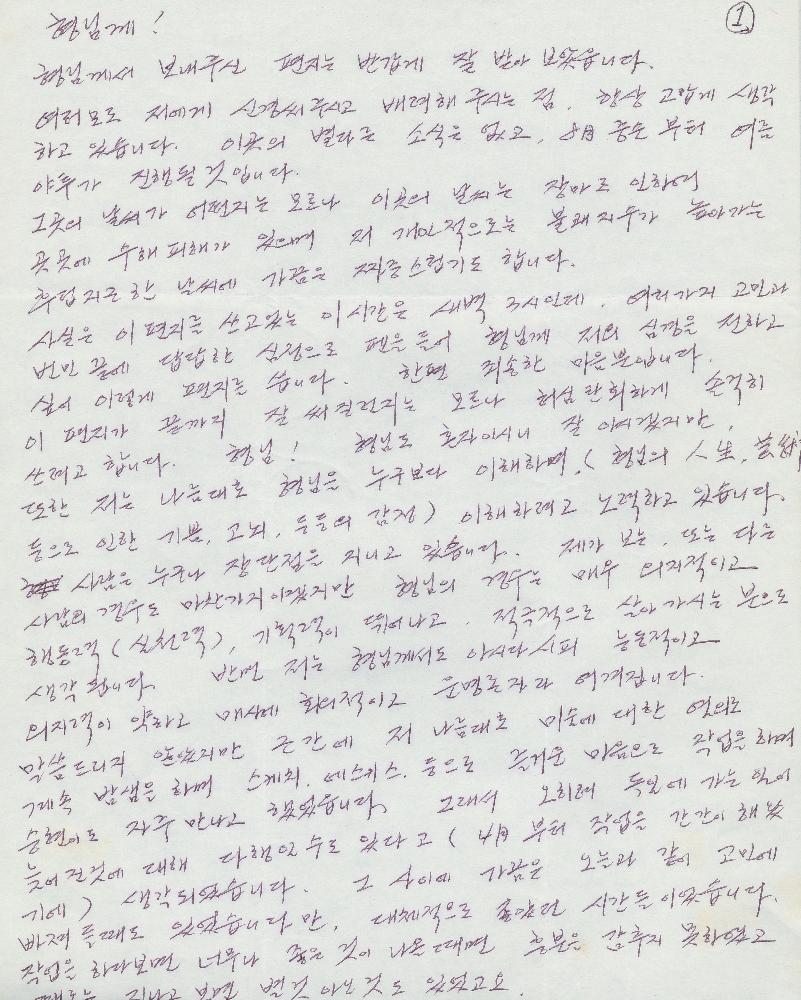 ①
형님께!
형님께서 보내주신 편지는 반갑게 잘 받아 보았습니다.
여러모로 저에게 신경써주시고 배려해 주시는 점, 항상 고맙게 생각
하고 있습니다. 이곳의 별다른 소식은 없고, 8月 중순부터 여름
야투가 진행될것입니다.
그곳의 날씨가 어떤지는 모르나 이곳의 날씨는 장마로 인하여
곳곳에 수해피해가 있으며 저 개인적으로는 불쾌지수가 높아가는
후덥지근한 날씨에 가끔은 짜증스럽기도 합니다.
사실은 이 편지를 쓰고있는 이시간은 새벽 3시인데, 여러가지 고민과
번민 끝에 답답한 심정으로 펜을 들어 형님께 저의 심경을 전하고
싶어 이렇게 편지를 씁니다. 한편 죄송한 마음뿐입니다.
이 편지가 끝까지 잘 써질런지는 모르나 허심탄회하게 솔직히
쓰려고 합니다. 형님! 형님도 혼자이시니 잘 아시겠지만,
또한 저는 나름대로 형님을 누구보다 이해하며, (형님의 人生,
등으로 인한 기쁨, 고뇌, 등등의 감정) 이해하려고 노력하고 있습니다.
사람은 누구나 장단점을 지니고 있습니다. 제가 보는, 또는 다른
사람의 경우도 마찬가지이겠지만 형님의 경우는 매우 의지적이고
행동력(실천력), 기획력이 뛰어나고, 적극적으로 살아가시는 분으로
생각됩니다. 반면 저는 형님께서도 아시다시피 능동적이고
의지력이 약하고 매사에 회의적이고 운명론자라 여겨집니다.
말씀드리지 않았지만 근간에 저 나름대로 미술에 대한 열의로
계속 밤샘을 하며 스케치, 에스키스, 등으로 즐거운 마음으로 작업을하며
승현이도 자주 만나고 했었습니다. 그래서 오히려 독일에 가는 일이
늦어진것에 대해 다행일 수도 있다고 (4月부터 작업을 간간이 해왔
기에) 생각되었습니다. 그 사이에 가끔은 오늘과 같이 고민에
빠져들때도 있었습니다만, 대체적으로 좋았던 시간들이었습니다.
작업을 하다보면 너무나 좋은 것이 나올때면 흥분을 감추지 못하였고
때로는 지나고 보면 별것 아닌것도 있었고요.